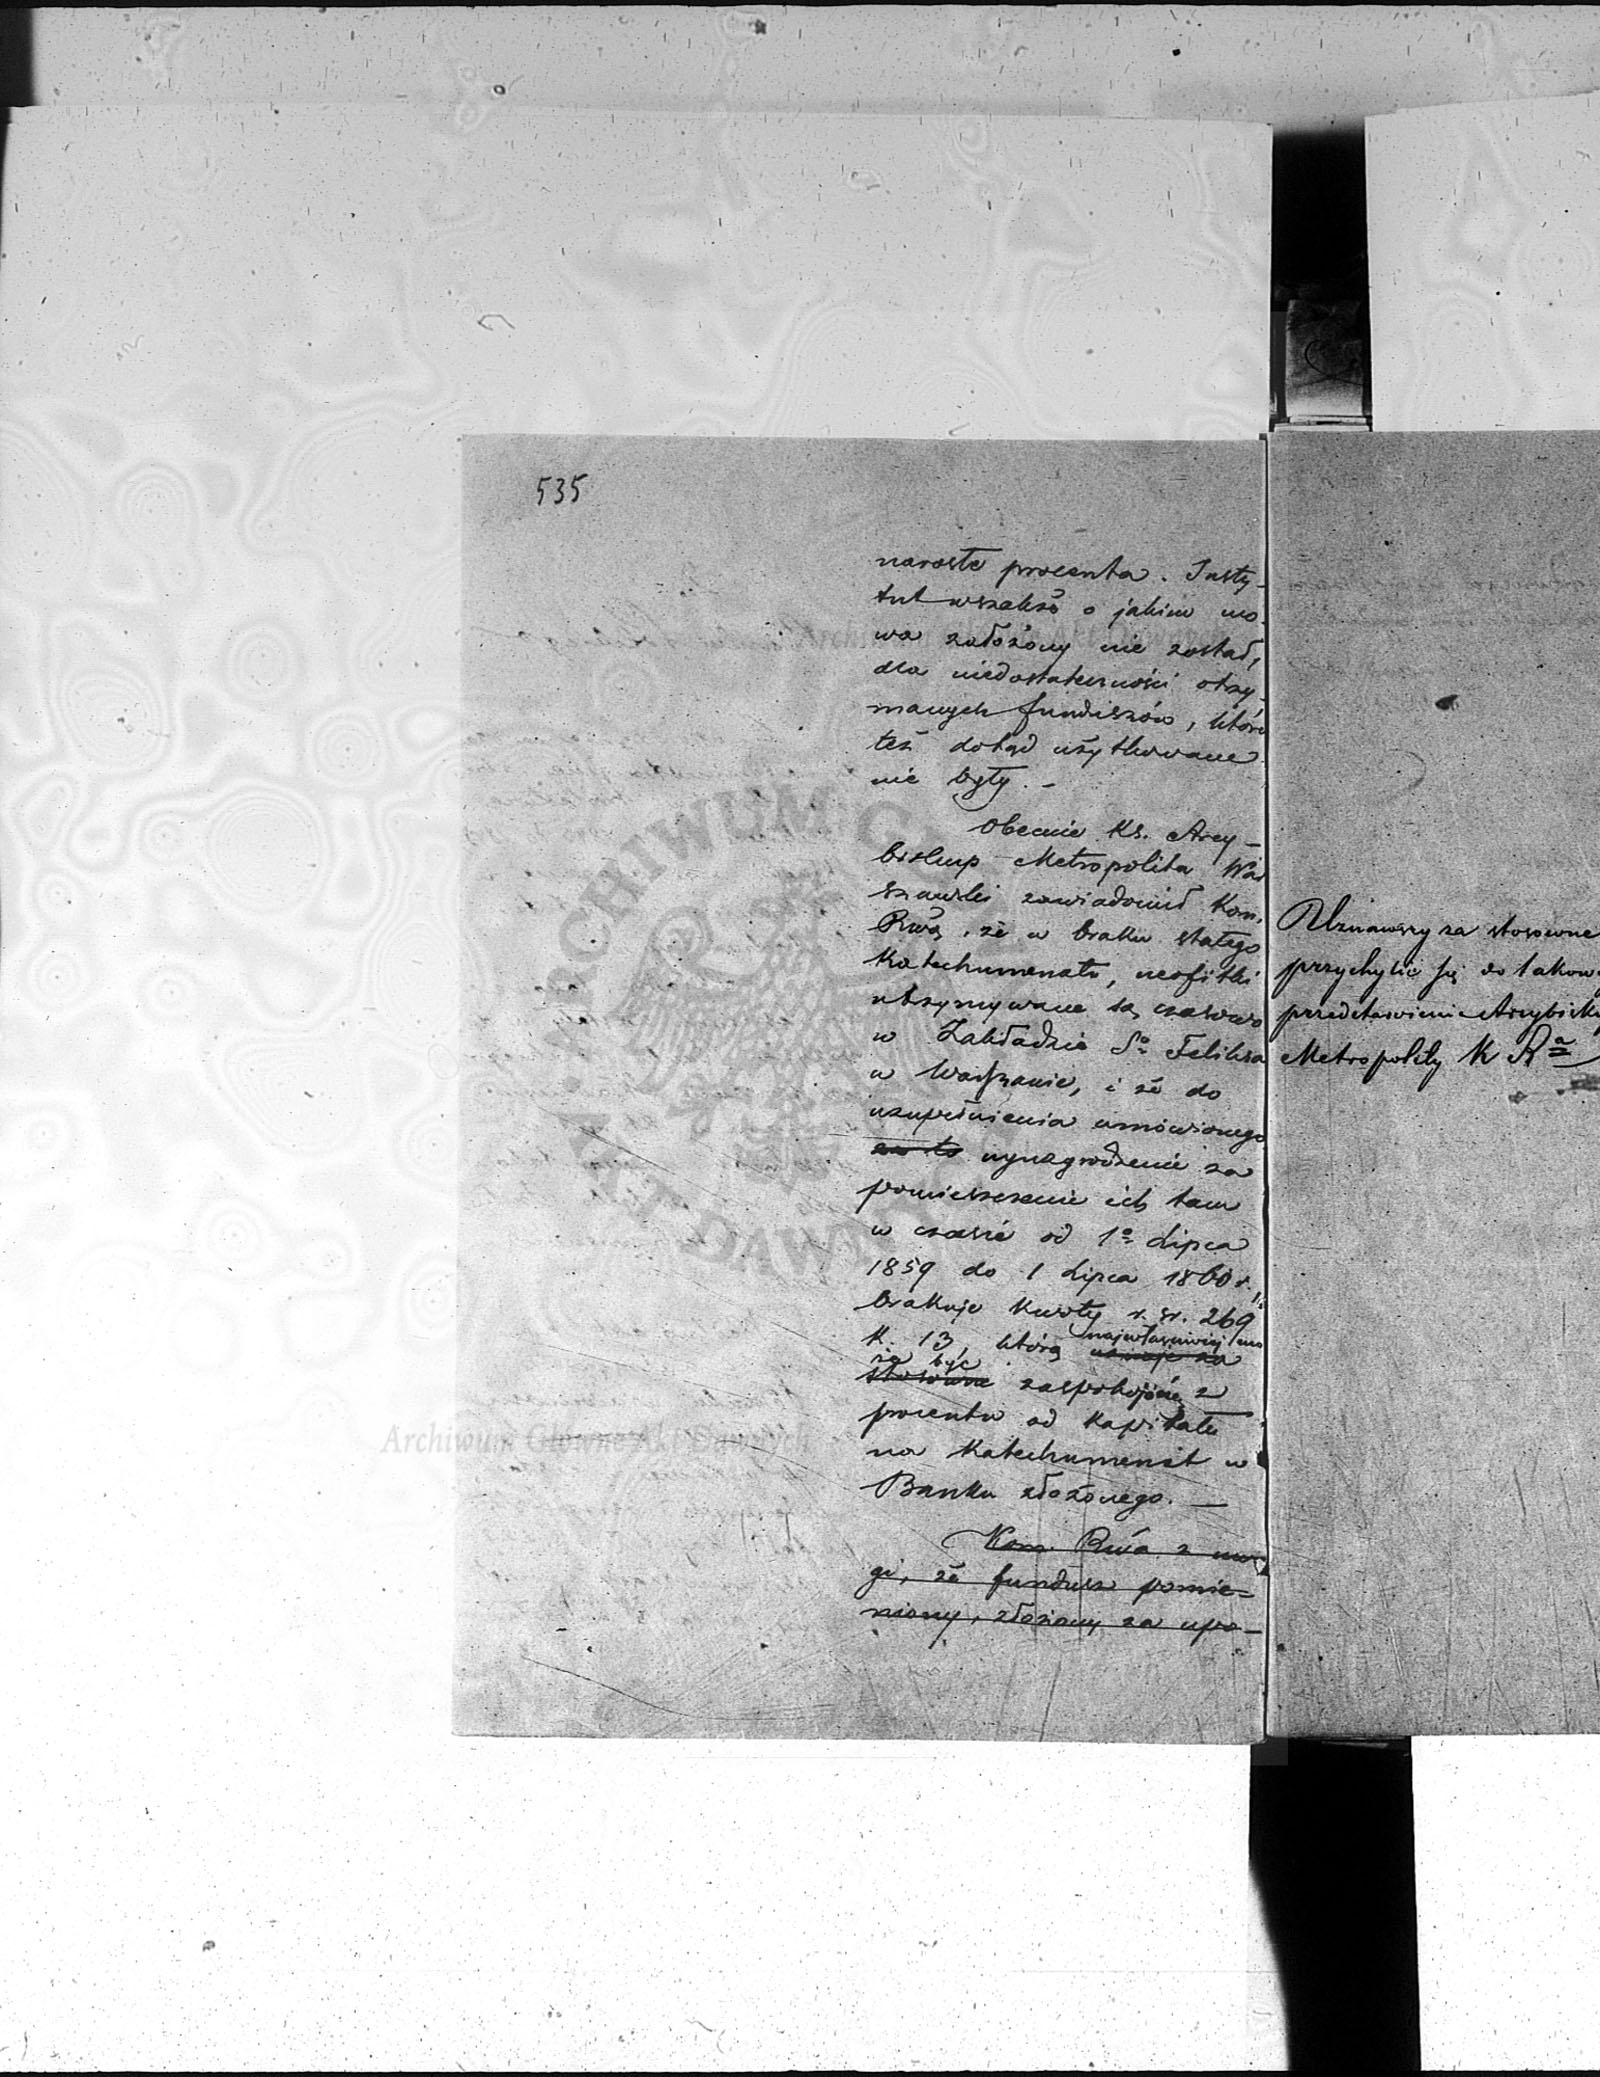 535
narosłe procenta. Insty-
tut wszakże o jakim mo-
wa założony nie został,
dla niedostateczności otrzy-
manych funduszów, które
też dotąd użytkowane
nie były. -
Obecnie Ks. Arcy-
biskup Metropolita War
szawski zawiadomił Kom.
Rwą, że w braku stałego
Katechumenatu, neofitki
utrzymywane są czasowo
w Zakładzie Sº Feliksa
w Warszawie, i że do
uzupełnienia umówionego
za to wynagrodzenie za
pomieszczenie ich tam
w czasie od 1º Lipca
1859 do 1 Lipca 1860 r.
brakuje kwoty r. sr. 269
najwłaściwiej mo
K. 13, którą uznaje za
że być
stosowne zaspokojone z
procentu od Kapitału
na Katechumenat w
Banku złożonego. —
Kom. Rwa z uwa
gi, że fundusz pomie-
niony, złożony za upo-
Uznawszy za stosowne
przychylić się do takow
przedstawienia Arcybisku
Metropolity K Rª
ARCHIWUM GŁ
AKT DAWN
Archiwum Główne Akt Dawnych